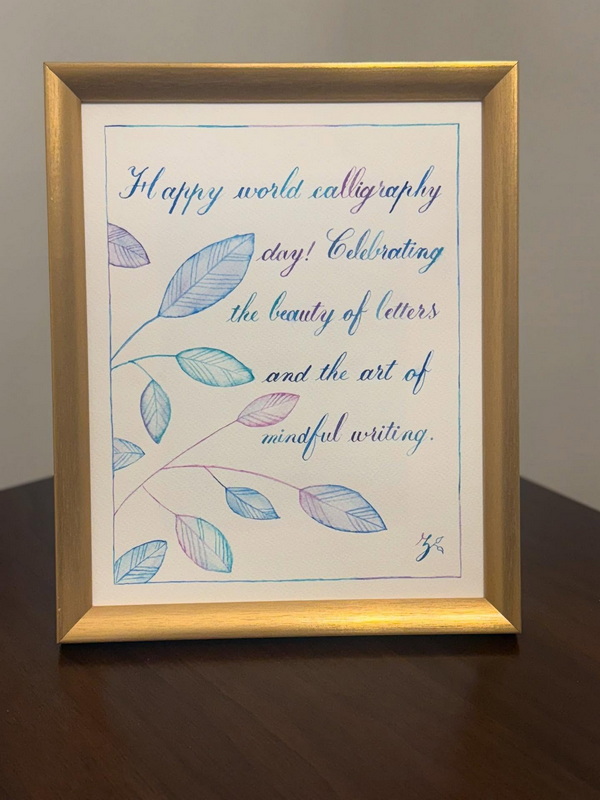 Happy world calligraphy
day! Celebrating
the beauty of letters
and the art of
mindful writing.